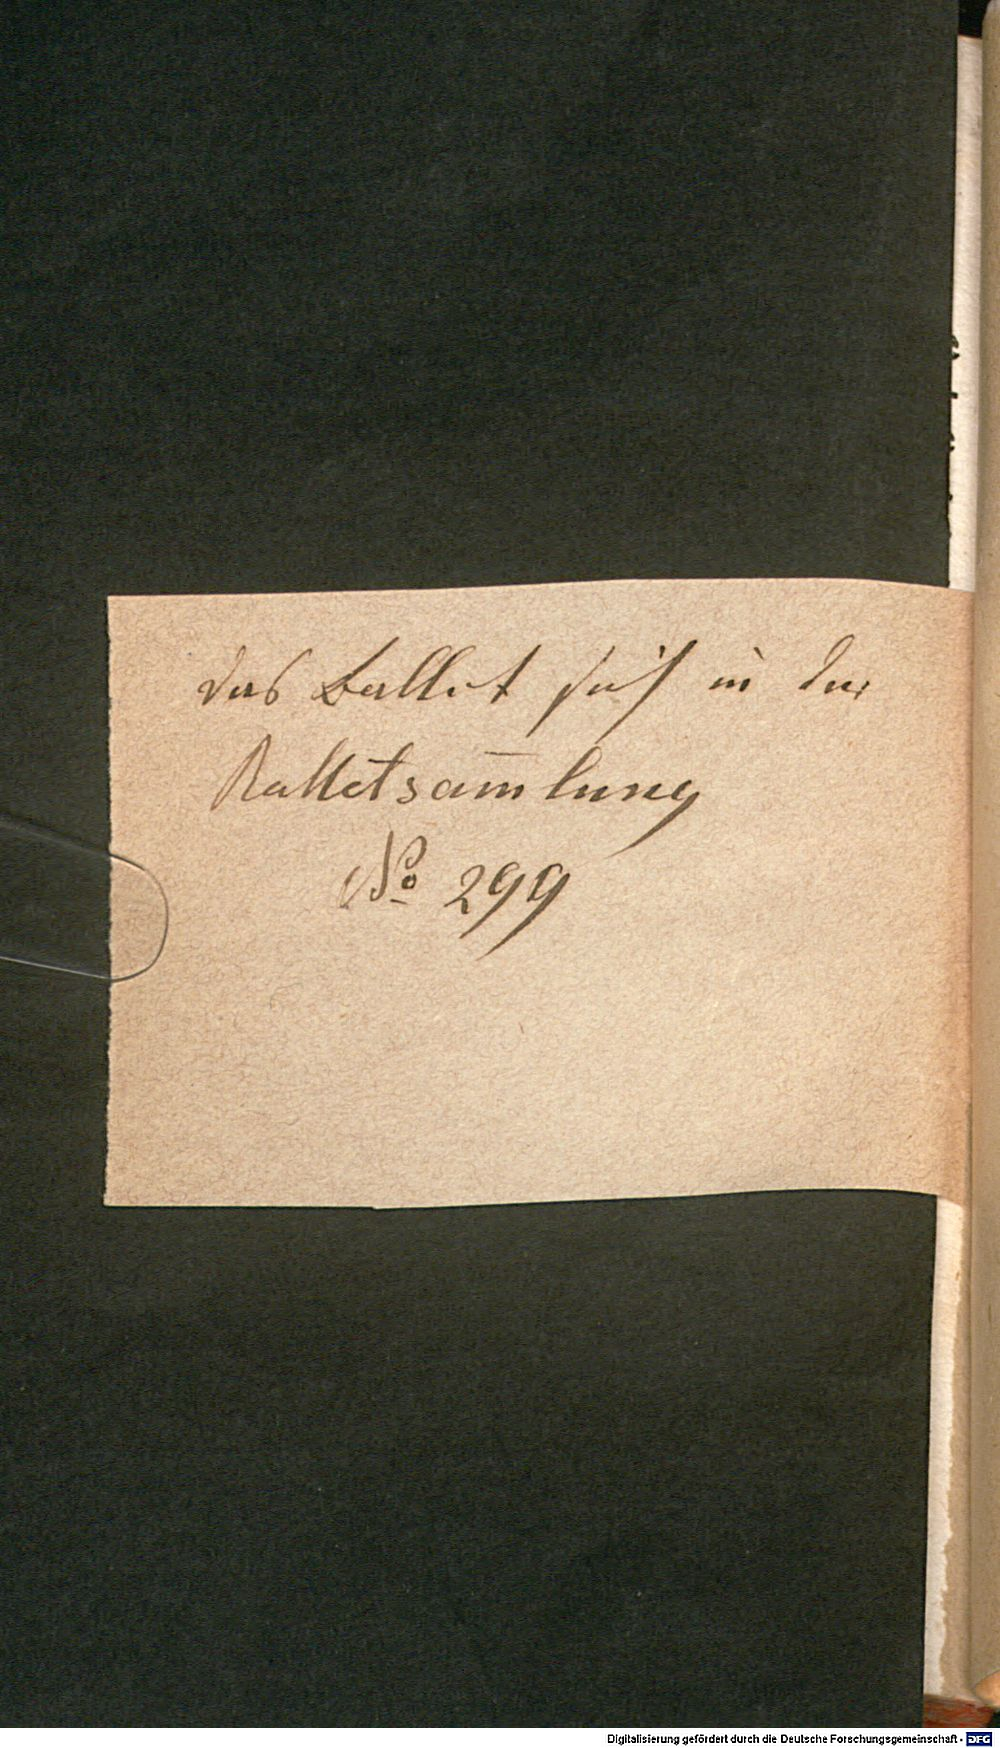 das Ballet sieh in der
Balletsam̄lung
No 299
Digitalisierung gefördert durch die Deutsche Forschungsgemeinschaft - DFG